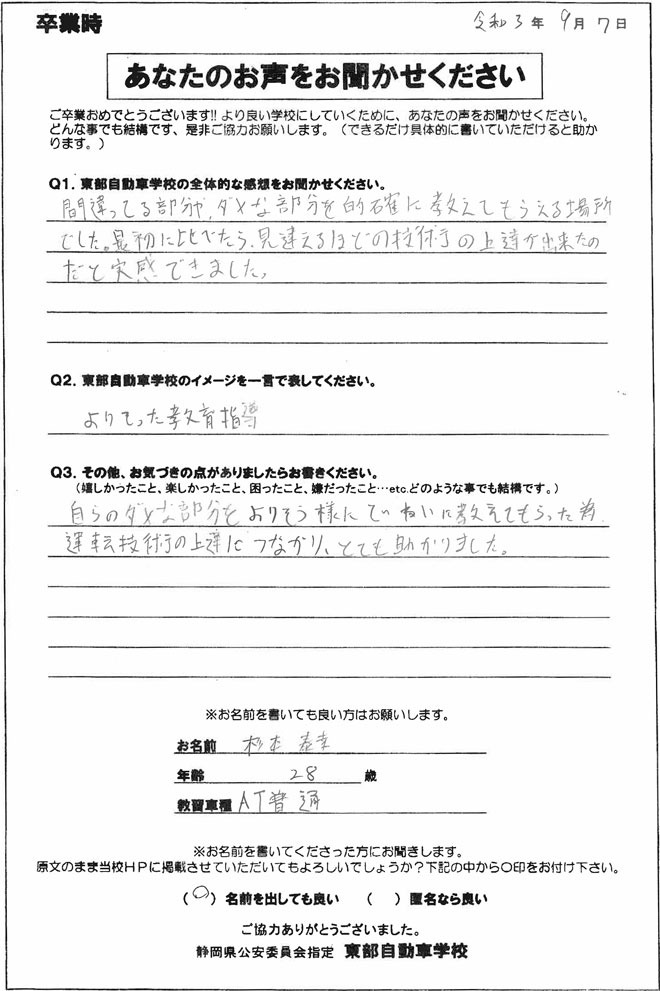 卒業時
令和3年9月7日
あなたのお声をお聞かせください
ご卒業おめでとうございます!! より良い学校にしていくために、あなたの声をお聞かせください。
どんな事でも結構です、是非ご協力お願いします。（できるだけ具体的に書いていただけると助か
ります。）
Q1. 東部自動車学校の全体的な感想をお聞かせください。
間違ってる部分や、ダメな部分を的確に教えてもらえる場所
でした。最初に比べたら、見違えるほどの技術の上達が出来たの
だと実感できました。
Q2. 東部自動車学校のイメージを一言で表してください。
よりそった教育指導
Q3. その他、お気づきの点がありましたらお書きください。
（嬉しかったこと、楽しかったこと、困ったこと、嫌だったこと…etc.どのような事でも結構です。）
自らのダメな部分をよりそう様にていねいに教えてもらった為、
運転技術の上達につながり、とても助かりました。
※お名前を書いても良い方はお願いします。
お名前 杉本 泰幸
年齢 28 歳
教習車種 AT普通
※お名前を書いてくださった方にお聞きします。
原文のまま当校HPに掲載させていただいてもよろしいでしょうか？下記の中から○印をお付け下さい。
（○）名前を出しても良い （ ）匿名なら良い
ご協力ありがとうございました。
静岡県公安委員会指定 東部自動車学校